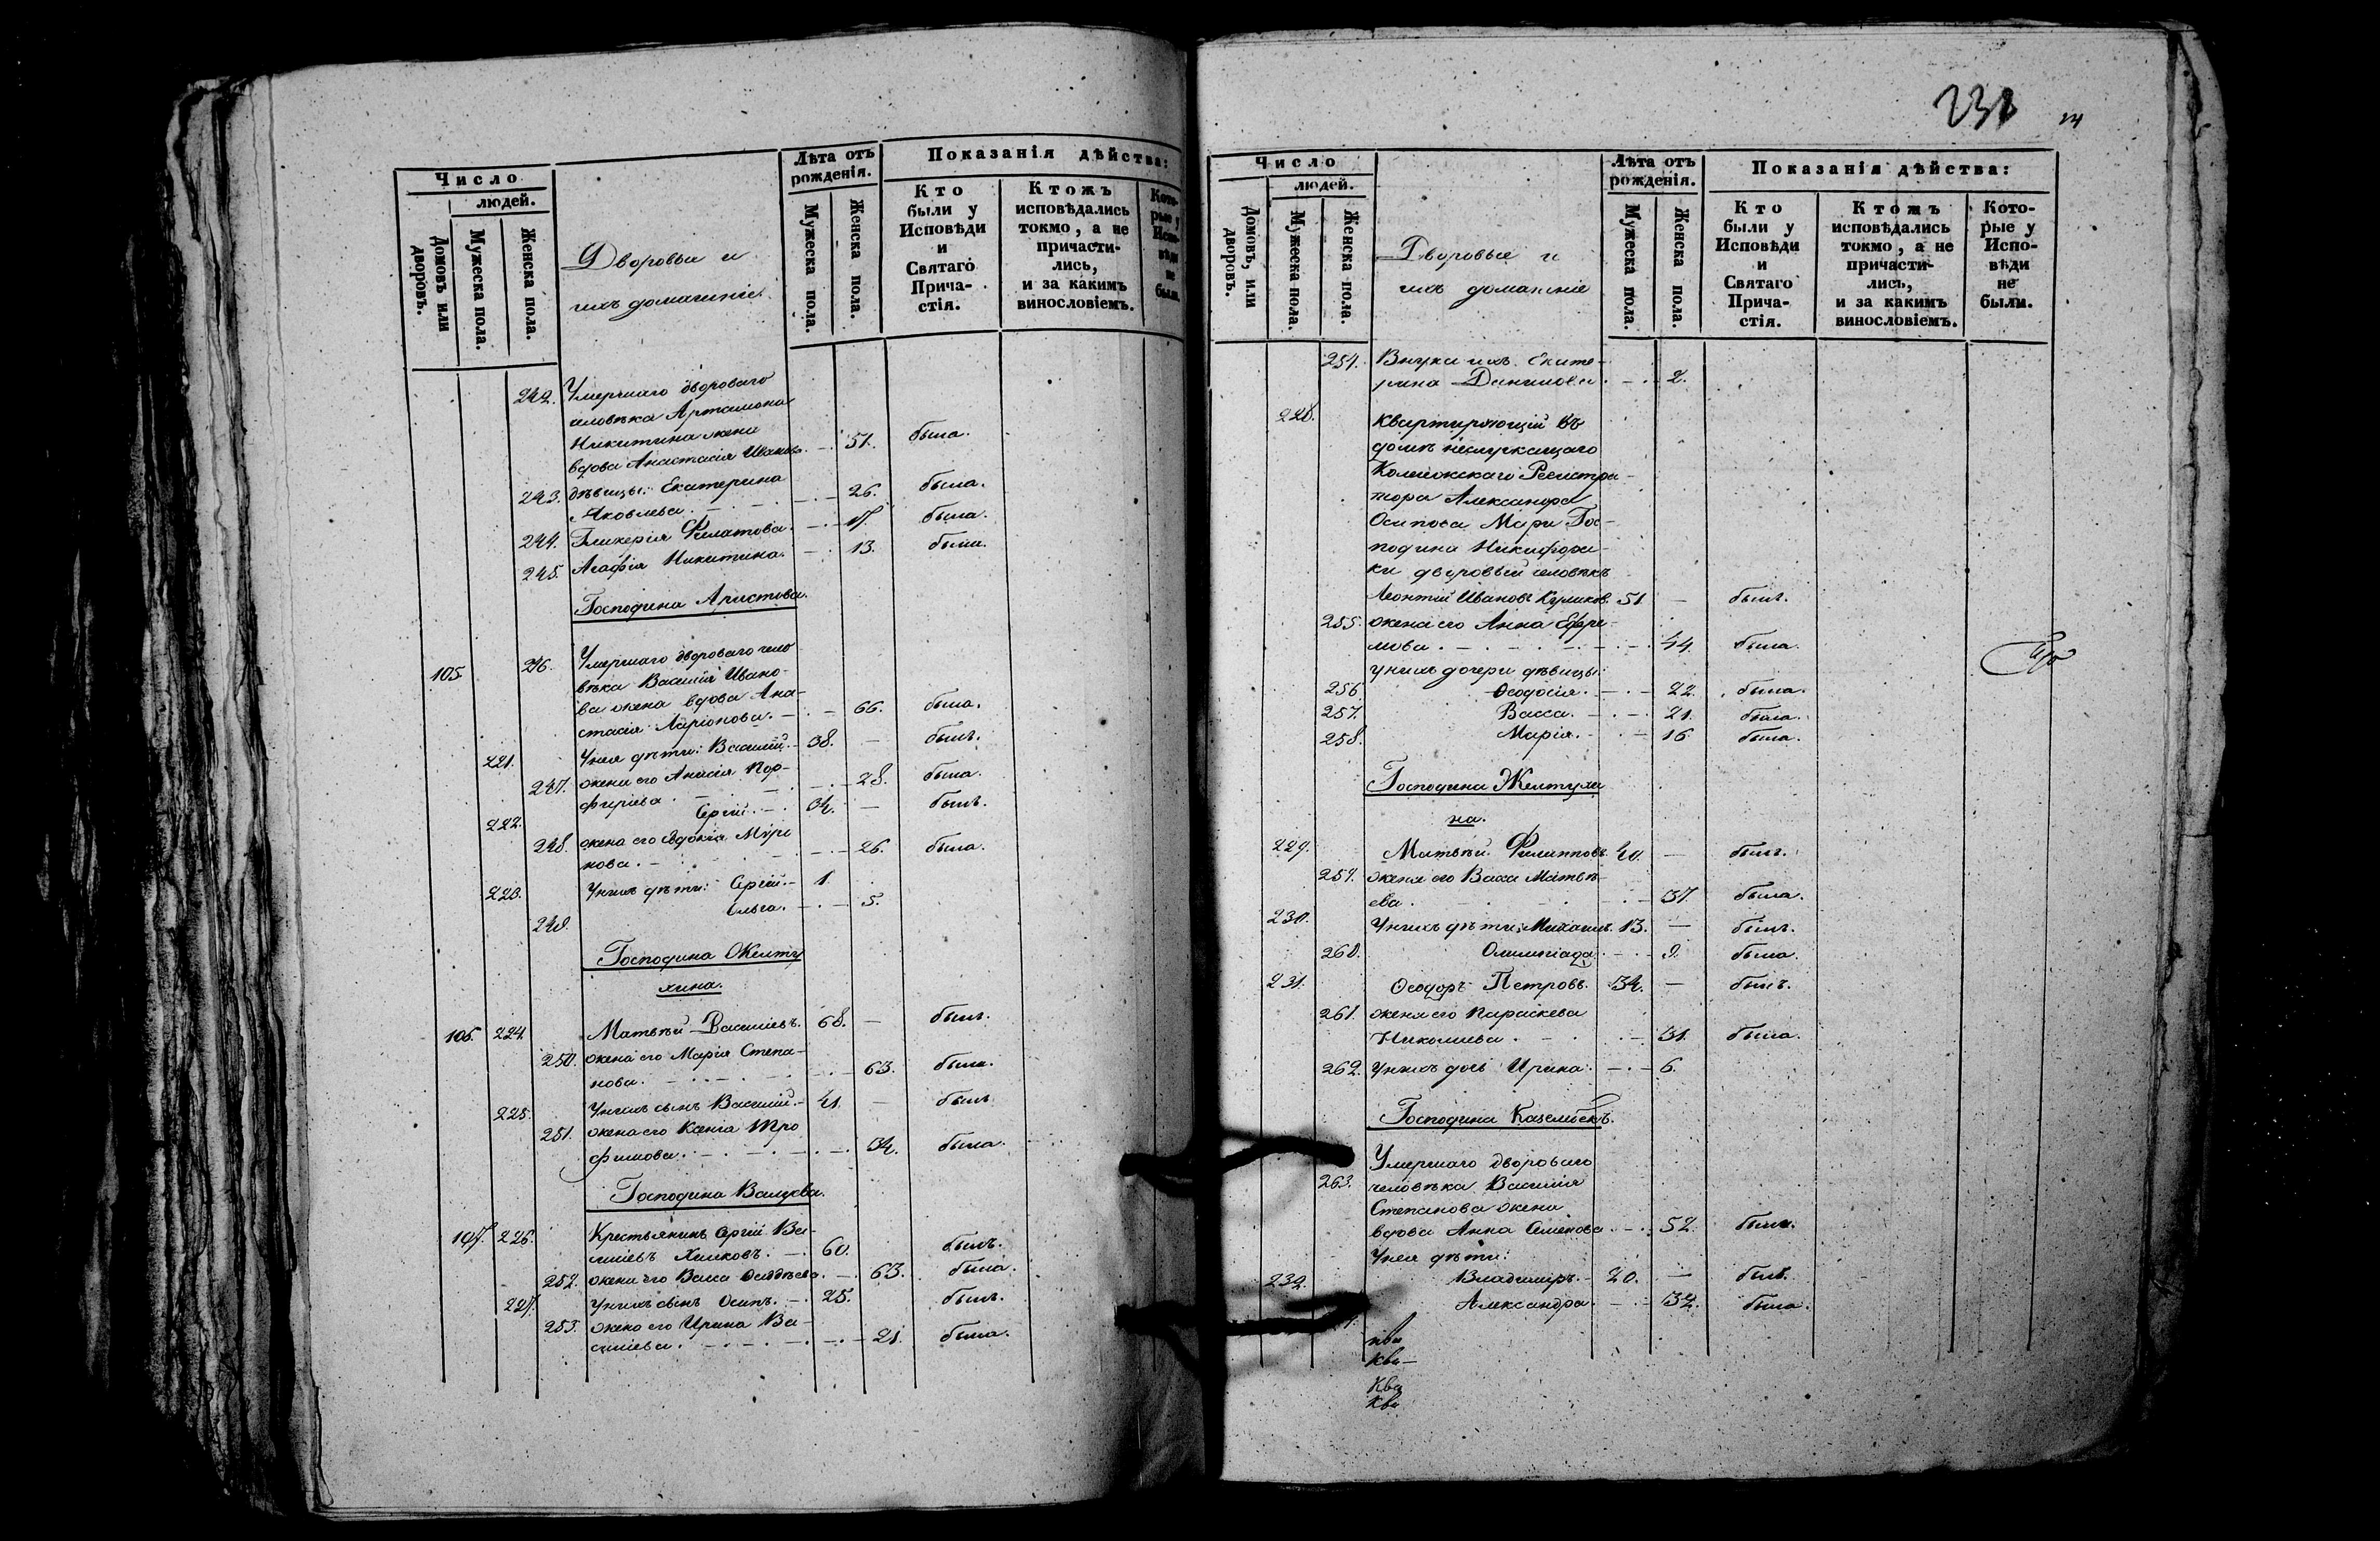 Число
людей.
Домовъ или дворовъ.
Мужеска пола.
Женска пола.
Дворовыи и
ихъ домашніе
Лѣта отъ
рожденія.
Мужеска пола.
Женска пола.
Показанія дѣйства:
Кто
были у
Исповѣди
и
Святаго
Прича-
стія.
Ктожъ
исповѣдались
токмо, а не
причасти-
лись,
и за какимъ
винословіемъ.
Кото-
рые у
Испо-
вѣди
не
были.
242. Умершаго двороваго
человѣка Артамона
Никитина жена
вдова Анастасія Иванова. 51. была.
243. дѣвицы: Екатерина
Яковлева. 26. была.
244. Гликерія Филатова. 17. была.
245. Агафія Никитина. 13. была.
Господина Аристова.
105. 246. Умершаго двороваго чело
вѣка Василія Ивано-
ва жена вдова Ана-
стасія Ларіонова. 66. была.
221. Унея дѣти: Василій. 38. — былъ.
247. жена его Анисія Пор-
фирьева. 28. была.
222. Сергій. 34. — былъ.
248. жена его Евдокія Мѵро
нова. 26. была.
223. Унихъ дѣти: Сергій. 1.
249. Ольга. 5.
Господина Желту
хина.
106. 224. Матвѣй Васильевъ. 68. — былъ.
250. жена его Марія Степа-
нова. 63. была.
225. Унихъ сынъ Василій. 41. — былъ
251. жена его Ксенія Тро
фимова. 34. была.
Господина Валуева.
107. 226. Крестьянинъ Сергій Ва-
сильевъ Хилковъ. 60. былъ.
252. жена его Васса Фаддѣева. 63. была.
227. Унихъ сынъ Осипъ. 25. былъ.
253. жена его Ирина Ва-
сильева. 21. была.
232
Число
людей.
Домовъ, или дворовъ.
Мужеска пола.
Женска пола.
Дворовые и
ихъ домашніе
Лѣта отъ
рожденія.
Мужеска пола.
Женска пола.
Показанія дѣйства:
Кто
были у
Исповѣди
и
Святаго
Прича-
стія.
Ктожъ
исповѣдались
токмо, а не
причасти-
лись,
и за какимъ
винословіемъ.
Кото-
рые у
Испо-
вѣди
не
были.
254. Внука ихъ Екате-
рина Данилова. 2.
228. Квартирующій въ
домѣ неслужащаго
Колежскаго Регистра-
тора Александра
Осипова Мари Гос-
подина Никифора-
ки дворовый человѣкъ
Леонтій Ивановъ Куликов. 51 — былъ.
255. жена его Анна Ефре-
мова. 44. была.
унихъ дочери дѣвицы:
256. Ѳеодосія. 22. была.
257. Васса. 21. была.
258. Марія. 16. была.
Господина Желтухи
на.
229. Матвѣй Филипповъ. 40. — былъ.
259. жена его Васса Матвѣ-
ева. 37. была.
230. Унихъ дѣти: Михаилъ. 13. — былъ.
260. Олимпіада. 9. была.
231. Ѳеодоръ Петровъ. 34. — былъ.
261. жена его Параскева
Николаева. 31. была.
262. Унихъ дочь Ирина. 6.
Господина
Умершаго двороваго
263. человѣка Василія
Степанова жена
вдова Анна Семенова. 52. была.
Унея дѣти:
232. Владимиръ. 20. — былъ.
Александра. 32. была.
ква
ква—
ква
ква